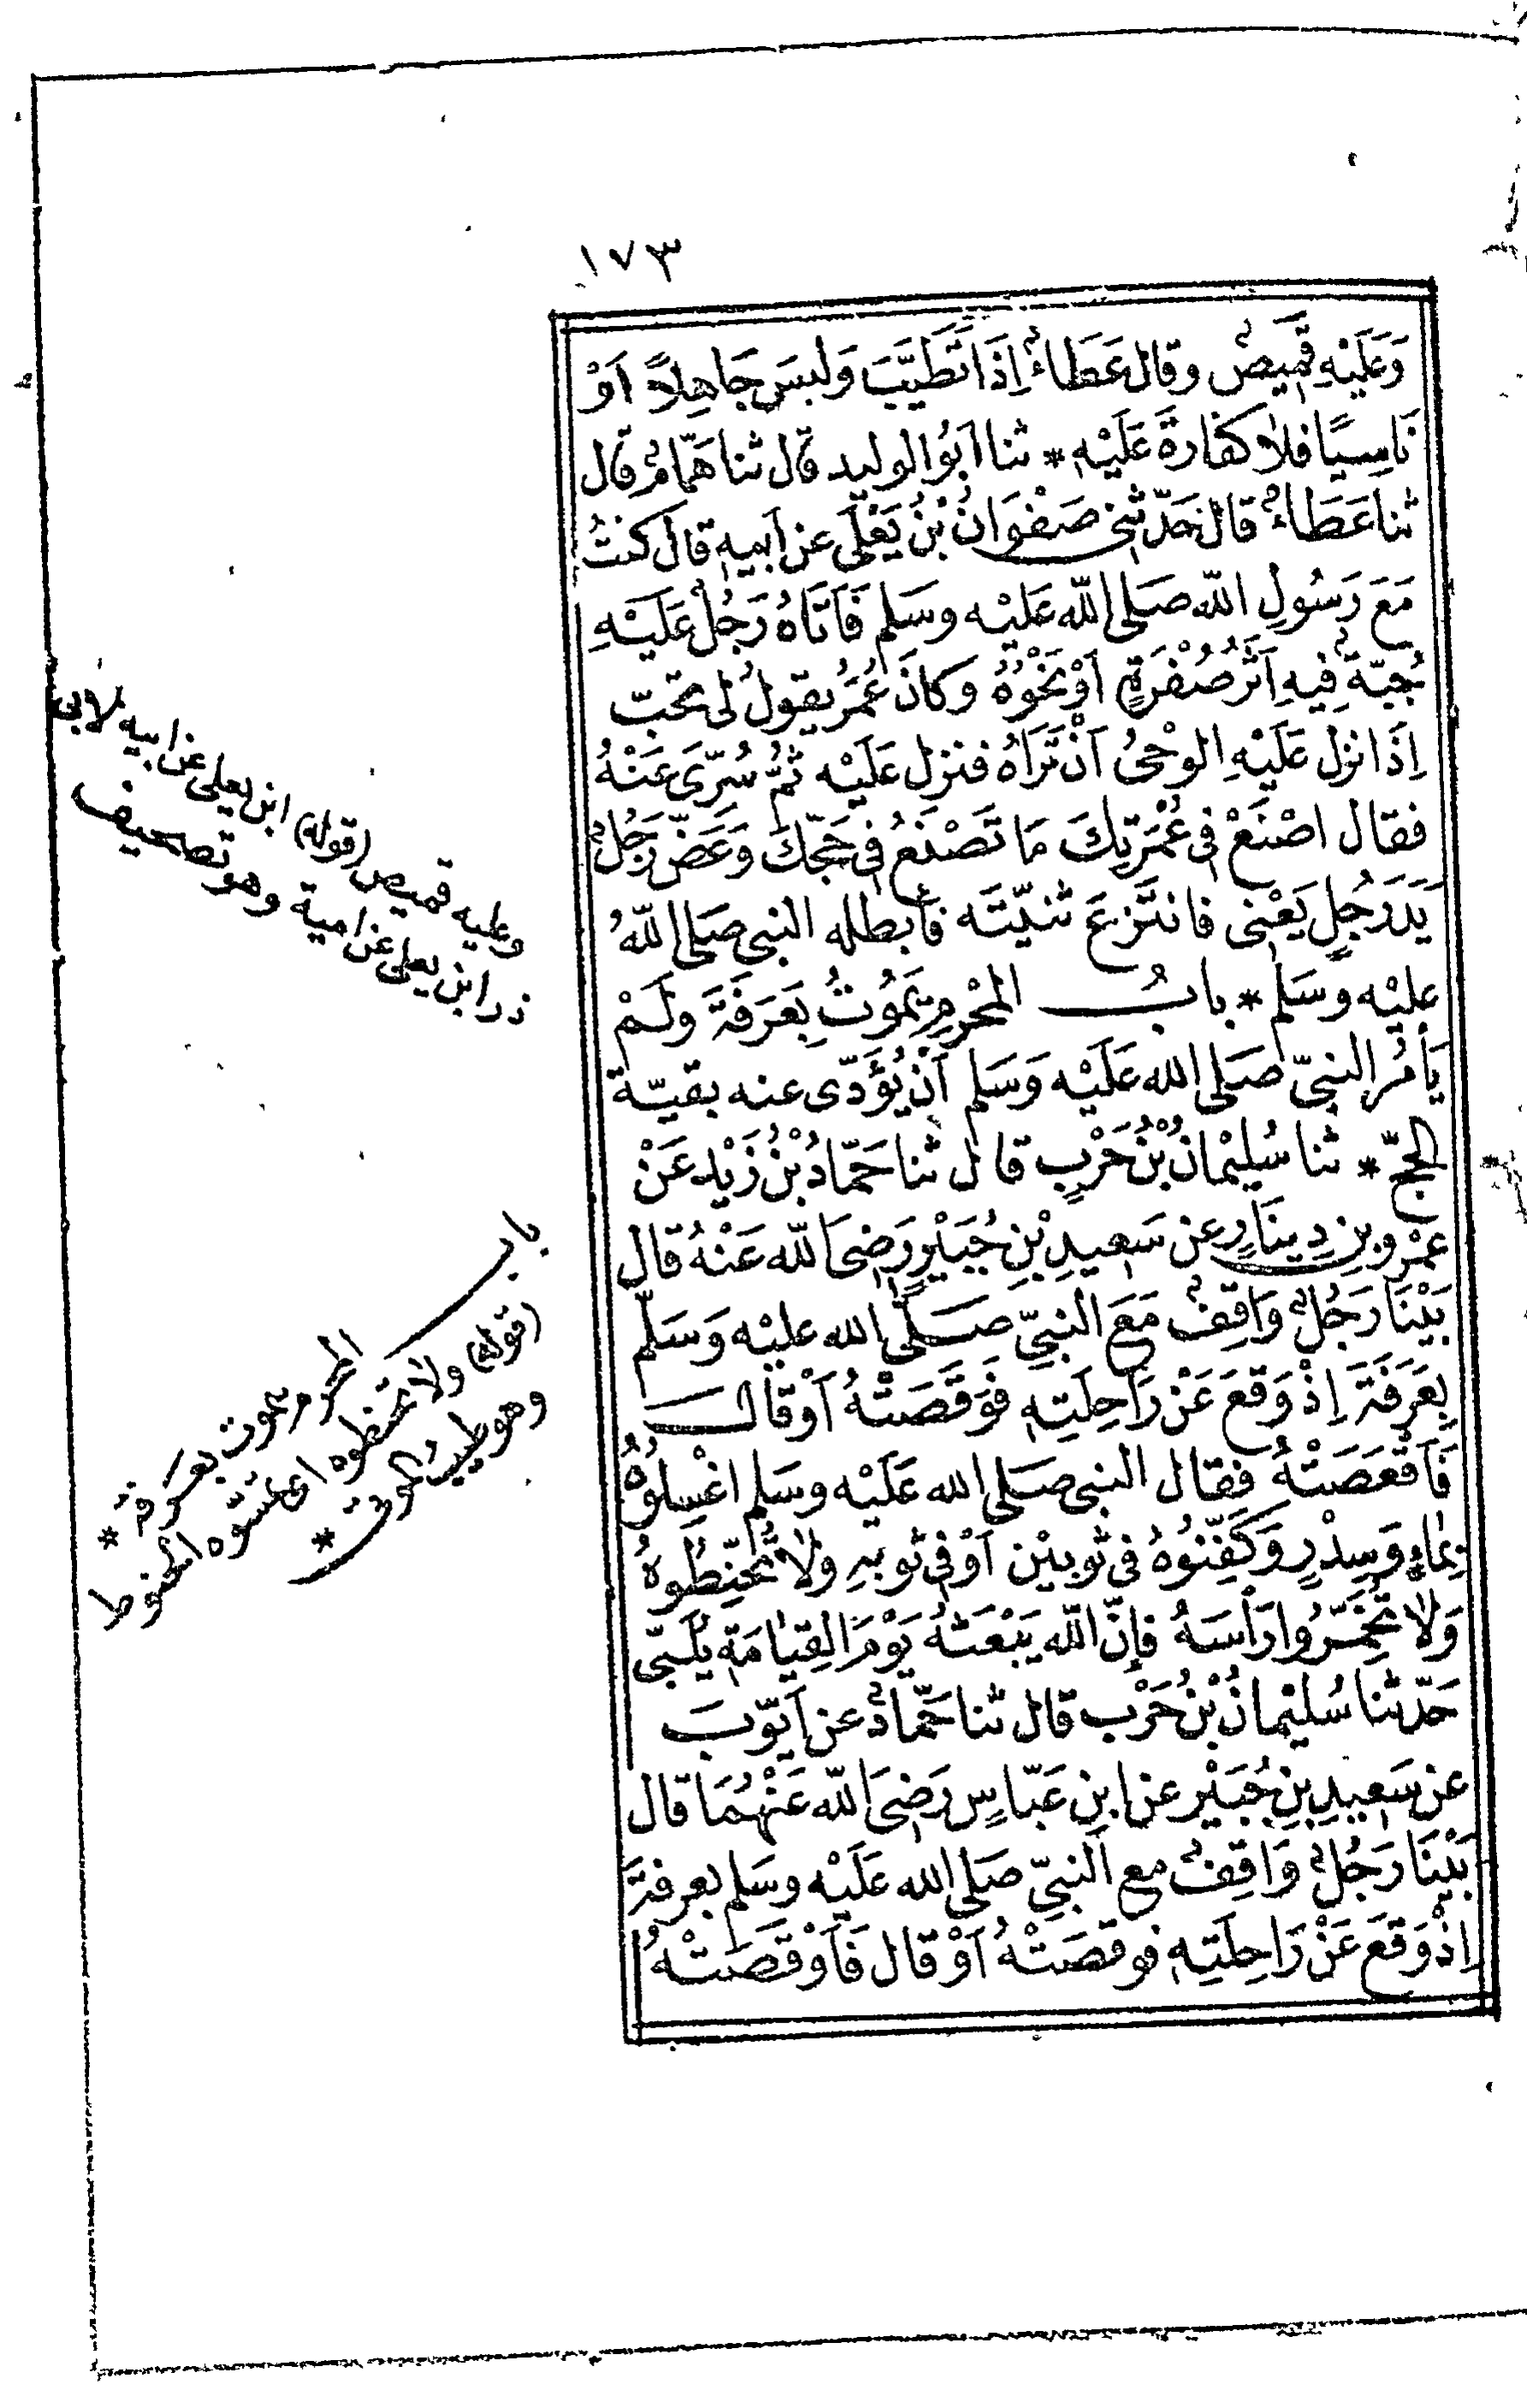 ١٧٣
وَعَلَيْهِ قَمِيصٌ وقال عَطَاءٌ اِذَا تَطَيَّبَ وَلَبِسَ جَاهِلاً اَوْ
نَاسِيًا فلا كفارةَ عَلَيْهِ * ثنا اَبُو الوليد قال ثنا هَمَّامٌ قال
ثنا عَطَاءٌ قال حَدّثنِى صَفْوَانُ بْنُ يَعْلَى عن اَبيهِ قال كنتُ
مَعَ رَسُولِ اللّه صَلى اللّه عَليْه وسَلم فَاَتَاهُ رَجُلٌ عَلَيْهِ
جُبّةٌ فِيهِ اَثَرُ صُفْرَةٍ اَوْ نَحْوُهُ وَكانَ عُمَرُ يقولُ لى تحبّ
اِذَا نزل عَلَيْهِ الوحْىُ اَنْ تَرَاهُ فنزل عَلَيْه ثمَّ سُرِّىَ عَنْهُ
فقال اصْنَعْ فى عُمْرَتِكَ مَا تَصْنَعُ فى حَجّكَ وَعَضّ رَجُلٌ
يَدَ رَجُلٍ يَعْنى فانتَزعَ ثنيّتَه فأبطله النبى صَلى اللّهُ
عليْه وسَلم * بابُ المحْرِمِ يَمُوتُ بِعَرَفَةَ وَلَمْ
يَأمُرِ النبىّ صَلى الله عَلَيْه وَسَلم اَنْ يُؤَدّى عنه بقيّة
الحجّ * ثنا سُليْمانُ بْنُ حَرْبٍ قال ثنا حَمّادُ بْنُ زَيْدٍ عَنْ
عَمْرِو بنِ دِينَارٍ عن سَعيدِ بْنِ جُبَيْرٍ رَضِىَ اللّه عَنْهُ قال
بَيْنَا رَجُلٌ وَاقِفٌ مَعَ النبىِّ صَلَّى الله عليْه وَسَلَّم
بِعَرَفَةَ اِذْ وَقَعَ عَنْ رَاحِلَتِهِ فَوَقَصَتْهُ اَوْ قالَ
فَاَقْعَصَتْهُ فقال النبى صَلى الله عَلَيْه وسَلم اغْسِلوُهُ
بِمَاءٍ وَسِدْرٍ وَكَفِّنُوهُ فى ثوبيْن اَوْ فى ثوبيهِ ولا تُحَنِّطُوهُ
وَلا تُخَمِّرُوا رَأسَهُ فإنّ اللّه يَبْعَثهُ يَوْمَ القِيَامَةِ يُلَبّى
حَدّثنا سُليْمانُ بْنُ حَرْب قال ثنا حَمّادٌ عن اَيّوبَ
عن سَعِيدِ بنِ جُبَيْر عن ابنِ عَبّاسٍ رَضِىَ اللّه عَنْهُمَا قال
بَيْنَا رَجُلٌ وَاقِفٌ مع النبىِّ صَلى الله عَلَيْه وسَلم بعرفةَ
اِذْ وَقَعَ عَنْ رَاحِلَتِهِ فوقصَتْهُ اَوْ قال فَاَوْقَصَتْهُ
وعليه قميص (قوله) ابن يعلى عن ابيه لابى
ذر ابن يعلى عن امية وهو تصحيف
باب المحرم يموت بعرفة *
(قوله) ولا تحنطوه اى تمسّوه الحنوط
وهو طيب الموتى *